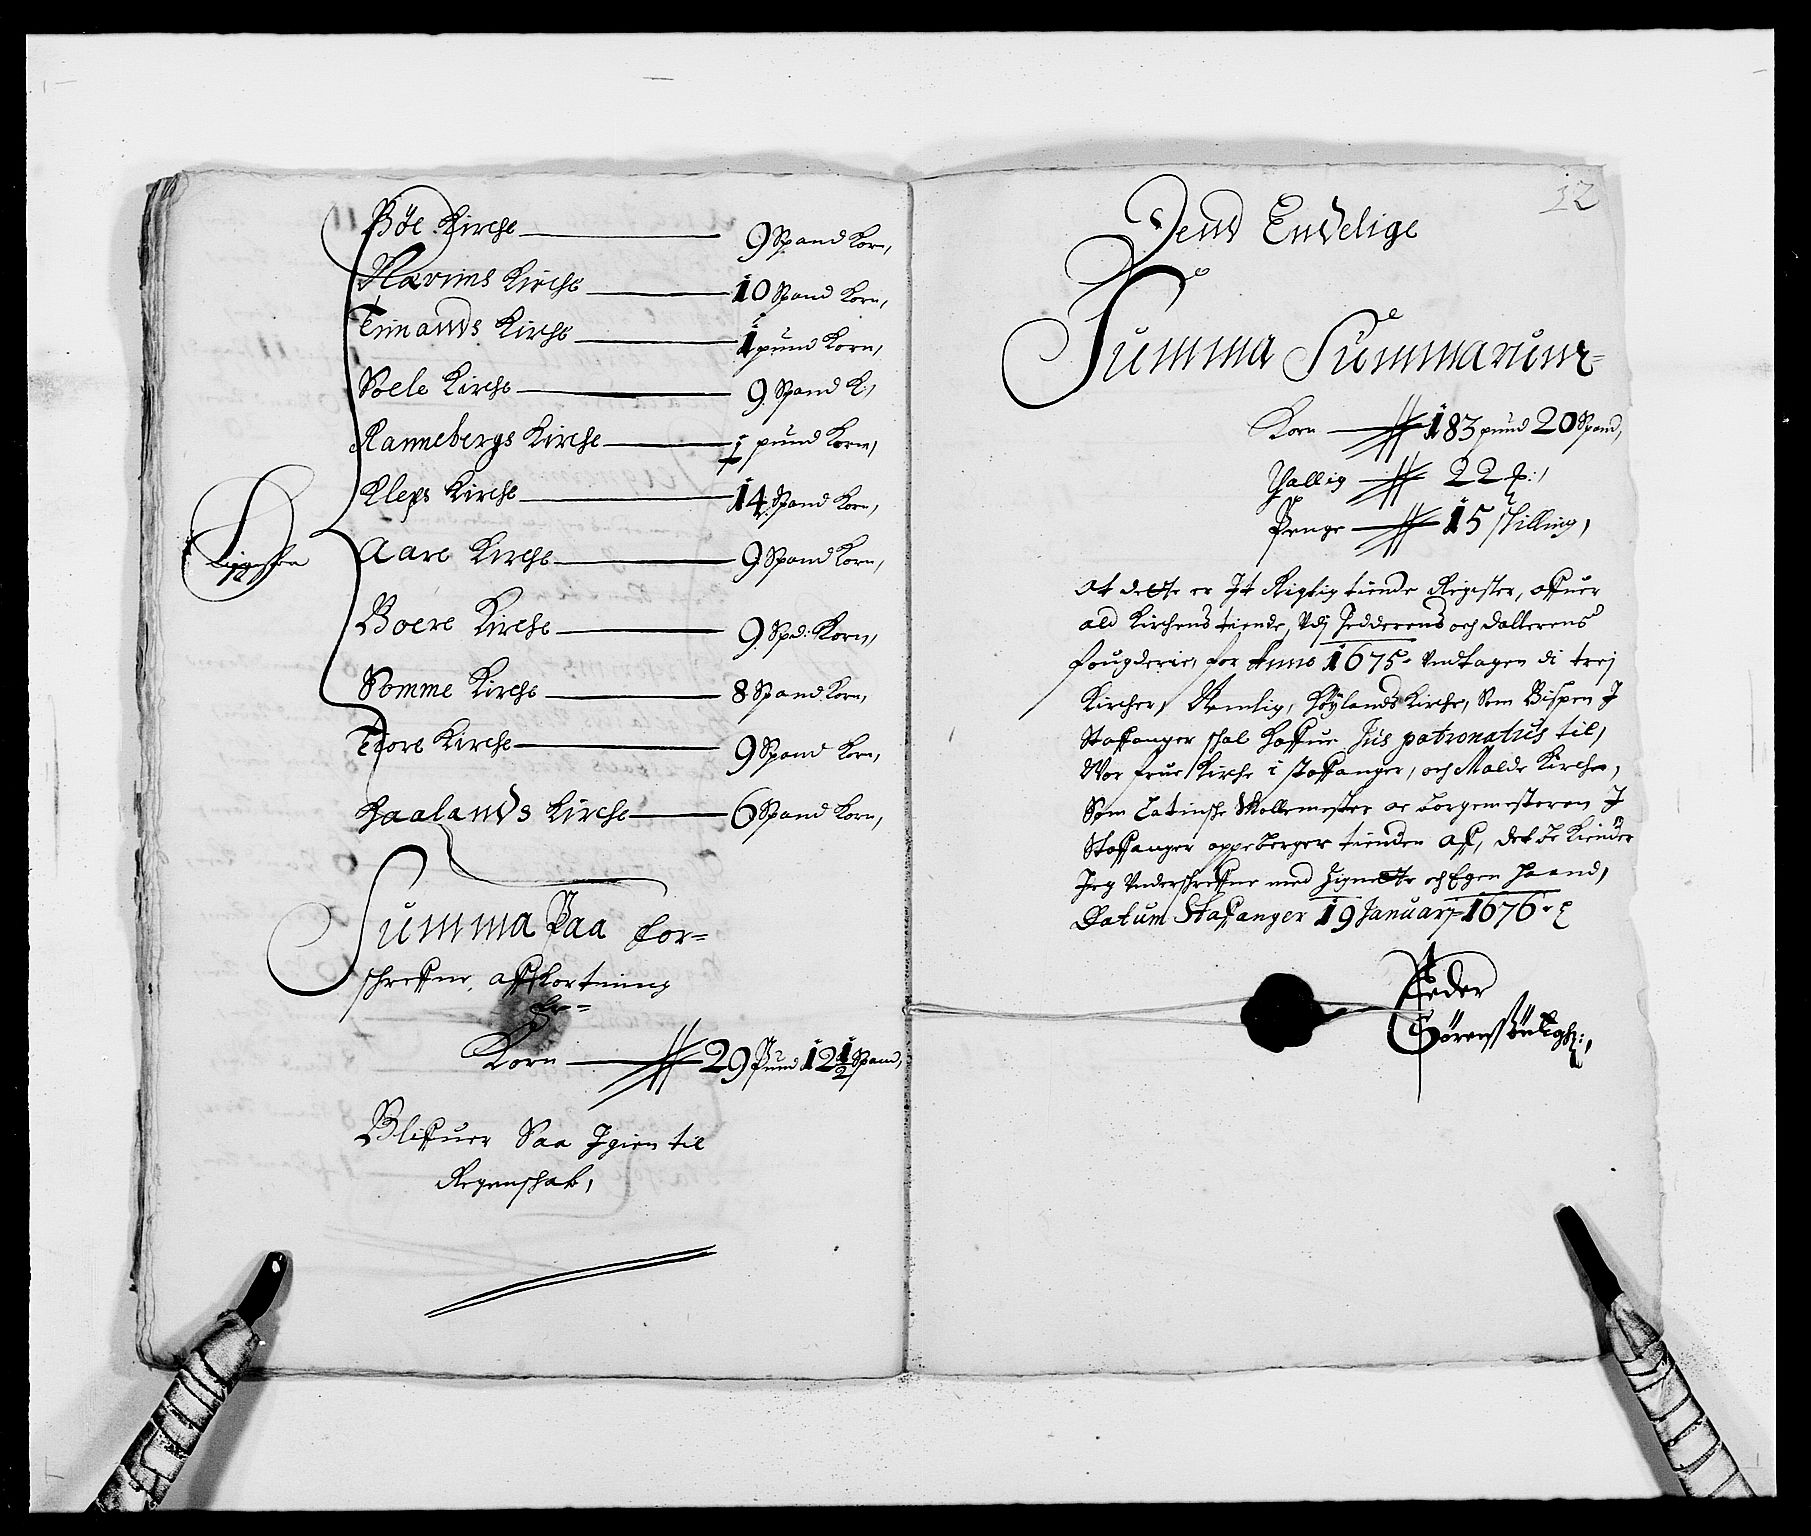 Böe Kirche 9 Spand Korn,
Narims Kirche 10 Spand Korn,
Timands Kirche 1 pund Korn,
Soele Kirche 9 Spand K:,
Rannebergs Kirche 1 pund Korn,
Kleps Kirche 14 Spand Korn,
Aare Kirche 9 Spand Korn,
Boere Kirche 9 Spd: Korn,
Somme Kirche 8 Spand Korn,
Tiore Kirche 9 Spand Korn,
Haalands Kirche 6 Spand Korn,
Summa Paa for=
schreffne affKortning
Er=
Korn 29 Pund 12 1/2 Spand,
Bliffuer Saa Igien til
Regenschab,
12
Dend Endelige
Summa Summarum=
Korn 183 pund 20 Spand,
Gallig 22 ß:,
Penge 15 skilling,
At dette er It Rigtig tiende Register, offuer
ald Kirchens tiende, Vdj Jedderens och Dallerens
fougderie, for Anno 1675. Vndtagen di trej
Kircher, Nemlig, Höylands Kirche, Som Bispen J
Staffanger schal haffue Jus patronatus til,
Vor frue Kirche i staffanger, och Malde Kirche,
Som Latinsche Skollemester oc borgemesteren J
Staffanger oppeberger tienden aff, det be Kiender
Jeg Vnderschreffne med Zignette och Egen Haand,
Datum Staffanger 19 Januarj 1676
Peder